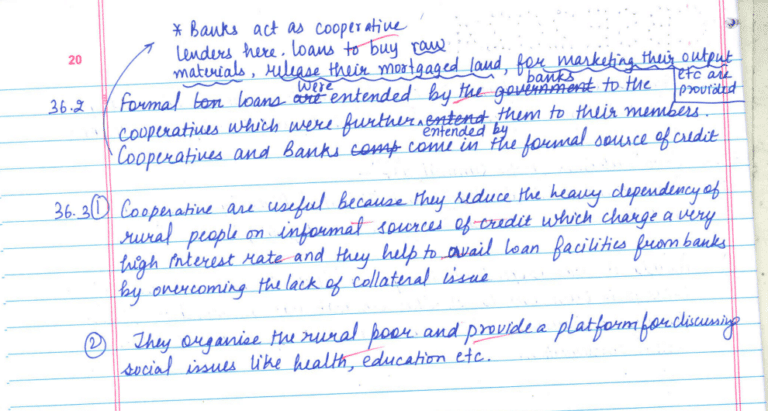 * Banks act as cooperative
20 lenders here. loans to buy raw
materials, release their mortgaged land, for marketing their output
etc are provided
36.2 Formal lon loans are were entended by the government banks to the
cooperatives which were further entend entended by them to their members.
Cooperatives and Banks comp come in the formal source of credit
36.3 ① Cooperative are useful because they reduce the heavy dependency of
rural people on informal sources of credit which charge a very
high interest rate and they help to avail loan facilities from banks
by overcoming the lack of collateral issue
② They organise the rural poor and provide a platform for discussing
social issues like health, education etc.